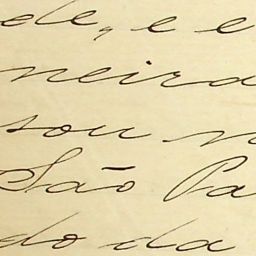 de, e e
neira
sou n
São Pa
do da